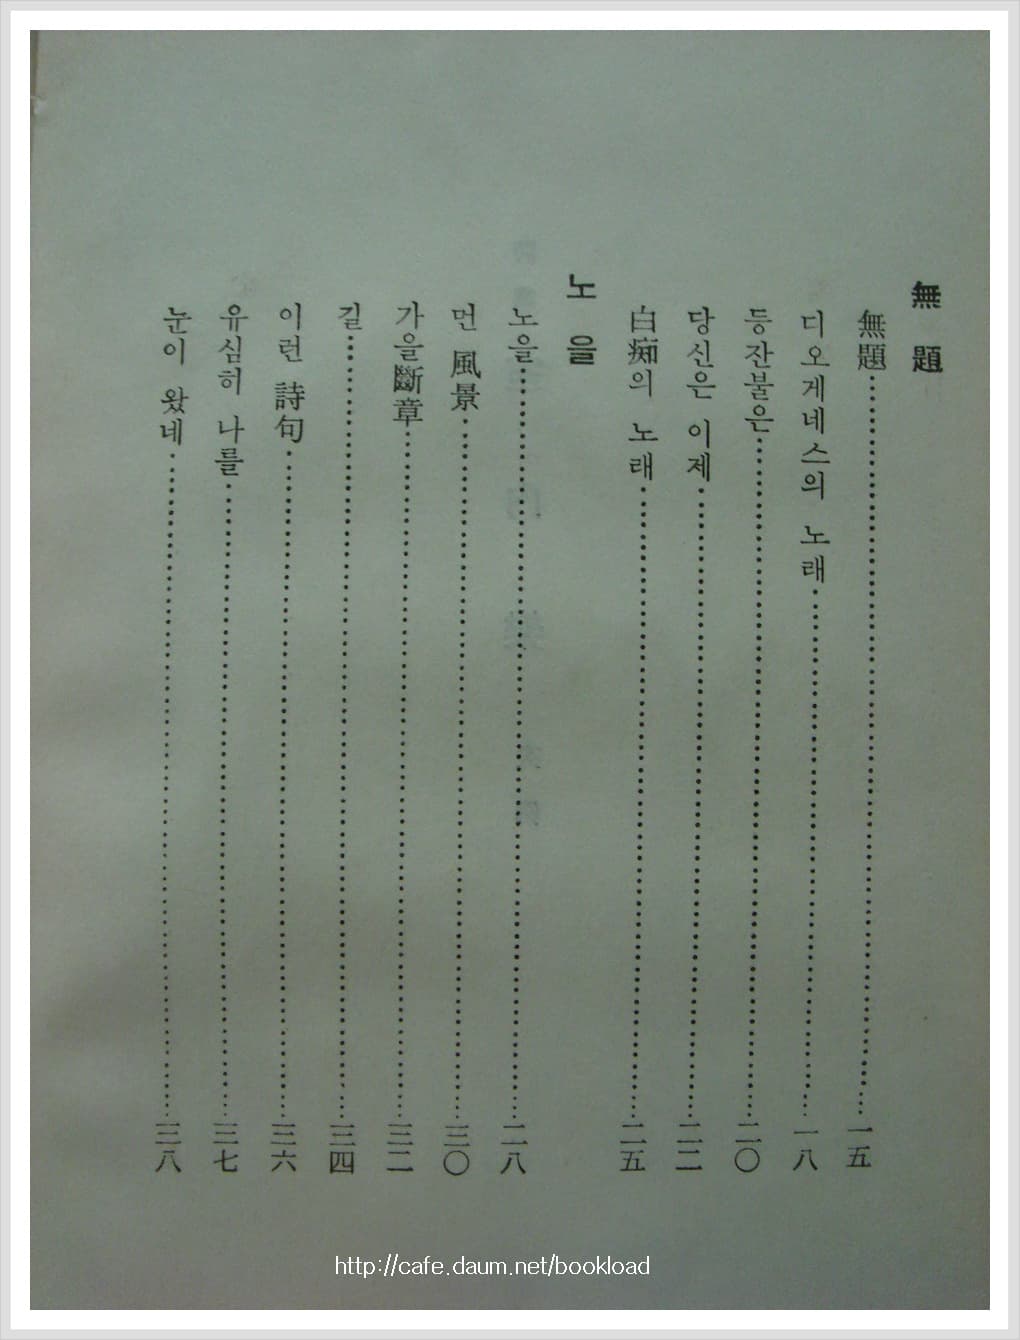 無題
無題 一五
디오게네스의 노래 一八
등잔불은 二〇
당신은 이제 二二
白痴의 노래 二五
노을
노을 二八
먼 風景 三〇
가을斷章 三二
길 三四
이런 詩句 三六
유심히 나를 三七
눈이 왔네 三八
http://cafe.daum.net/bookload